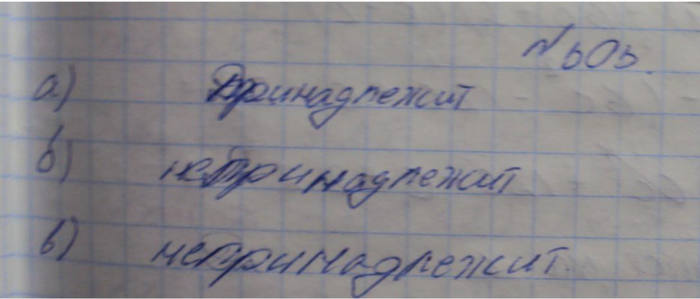 №503.
а) принадлежит
б) непринадлежит
в) непринадлежит